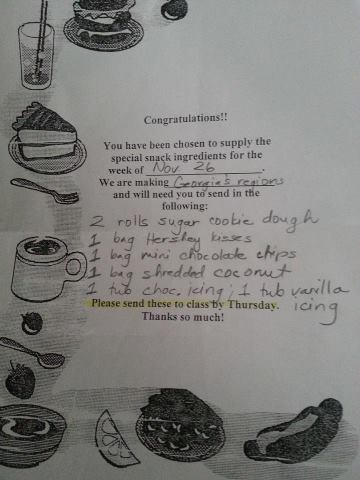 Congratulations!!
You have been chosen to supply the
special snack ingredients for the
week of Nov. 26.
We are making Georgia's regions
and will need you to send in the
following:
2 rolls sugar cookie dough
1 bag Hershey kisses
1 bag mini chocolate chips
1 bag shredded coconut
1 tub choc. icing; 1 tub vanilla
icing
Please send these to class by Thursday.
Thanks so much!